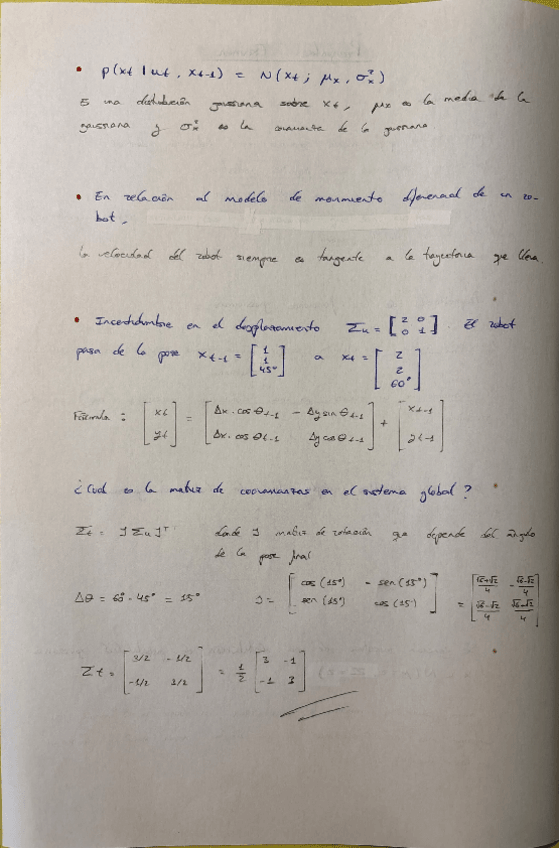 • p(xt | ut, xt-1) = N(xt; μx, σx²)
Es una distribución gaussiana sobre xt, μx es la media de la
gaussiana y σx² es la covarianza de la gaussiana
• En relación al modelo de movimiento diferencial de un ro-
bot,
la velocidad del robot siempre es tangente a la trayectoria que lleva.
• Incertidumbre en el desplazamiento Σu = [2 0; 0 1]. El robot
pasa de la pose xt-1 = [1; 1; 45°] a xt = [2; 2; 60°]
Fórmula: [xt; yt] = [Δx · cos θt-1 - Δy sin θt-1; Δx · cos θt-1 Δy cos θt-1] + [xt-1; yt-1]
¿Cuál es la matriz de covarianzas en el sistema global?
Σt = J Σu Jᵀ donde J matriz de rotación que depende del ángulo
de la pose final
Δθ = 60 - 45° = 15° J = [cos (15°) - sen (15°); sen (15°) cos (15°)] = [√6+√2/4 - √6-√2/4; √6-√2/4 √6+√2/4]
Σt = [3/2 - 1/2; -1/2 3/2] = 1/2 [3 -1; -1 3]